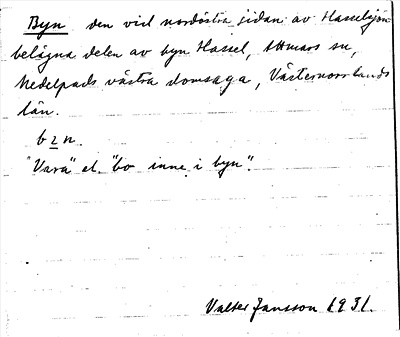 Byn den vid nordöstra sidan av Hasselsjön
belägna delen av byn Hassel, Attmars sn,
Medelpads västra domsaga, Västernorrlands
län.
bzn.
"Vara" el. "bo inne i byn".
Valter Jansson 1931.